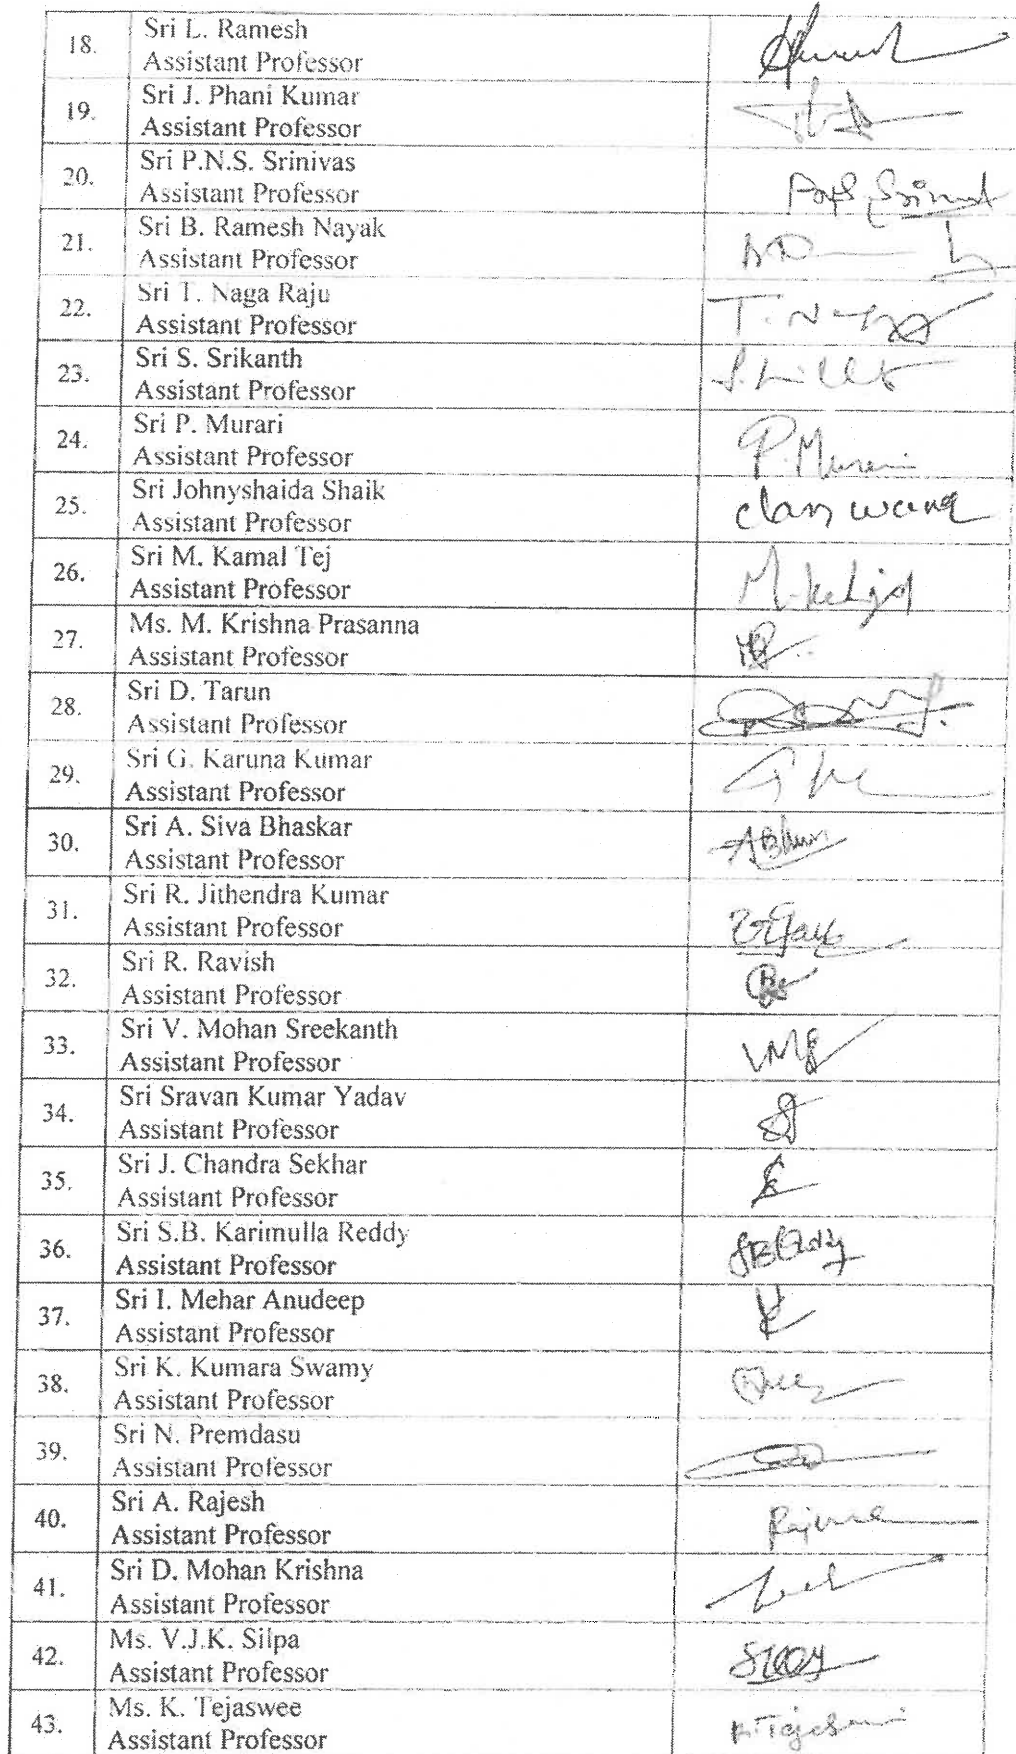 18. Sri L. Ramesh
Assistant Professor
19. Sri J. Phani Kumar
Assistant Professor
20. Sri P.N.S. Srinivas
Assistant Professor
21. Sri B. Ramesh Nayak
Assistant Professor
22. Sri T. Naga Raju
Assistant Professor
23. Sri S. Srikanth
Assistant Professor
24. Sri P. Murari
Assistant Professor
P. Murari
25. Sri Johnyshaida Shaik
Assistant Professor
26. Sri M. Kamal Tej
Assistant Professor
27. Ms. M. Krishna Prasanna
Assistant Professor
28. Sri D. Tarun
Assistant Professor
29. Sri G. Karuna Kumar
Assistant Professor
30. Sri A. Siva Bhaskar
Assistant Professor
31. Sri R. Jithendra Kumar
Assistant Professor
32. Sri R. Ravish
Assistant Professor
33. Sri V. Mohan Sreekanth
Assistant Professor
34. Sri Sravan Kumar Yadav
Assistant Professor
35. Sri J. Chandra Sekhar
Assistant Professor
36. Sri S.B. Karimulla Reddy
Assistant Professor
37. Sri I. Mehar Anudeep
Assistant Professor
38. Sri K. Kumara Swamy
Assistant Professor
39. Sri N. Premdasu
Assistant Professor
40. Sri A. Rajesh
Assistant Professor
41. Sri D. Mohan Krishna
Assistant Professor
42. Ms. V.J.K. Silpa
Assistant Professor
43. Ms. K. Tejaswee
Assistant Professor